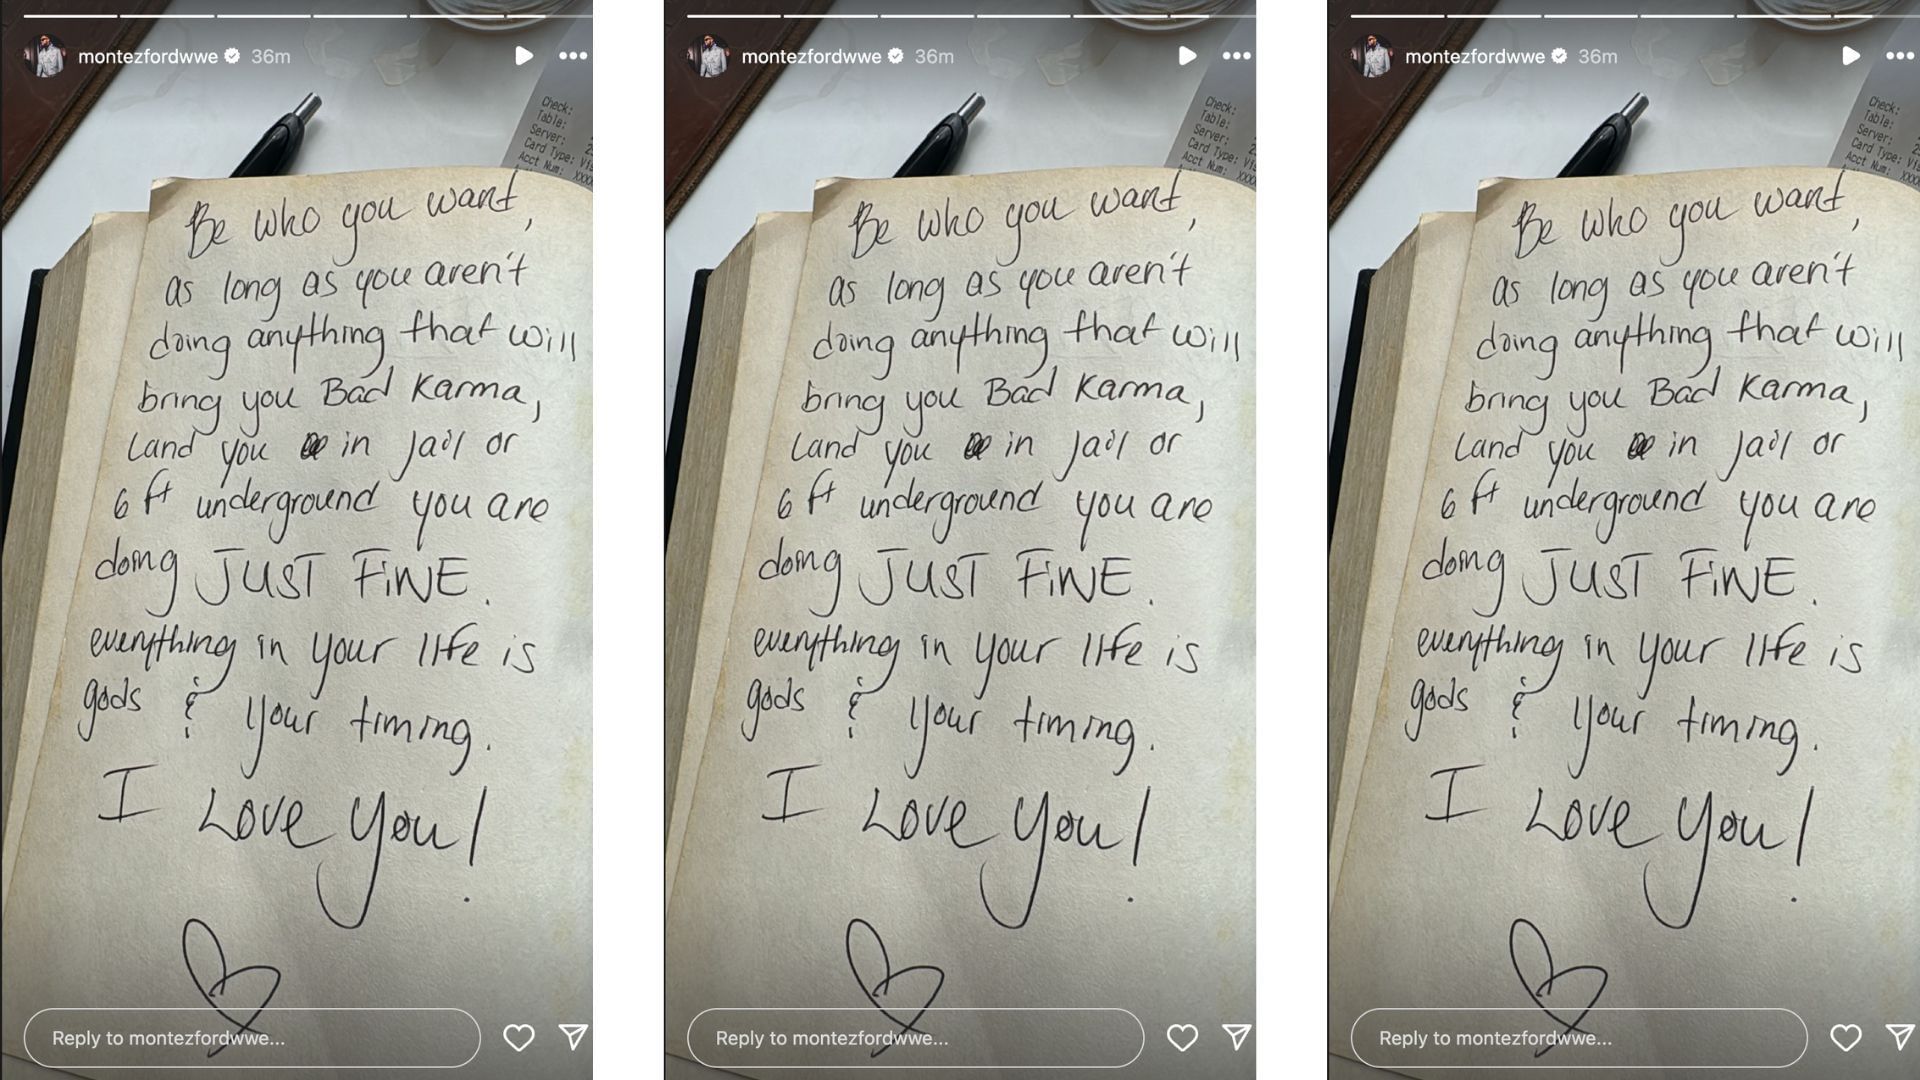 montezfordwwe 36m
Check:
Table:
Server:
Card Type: Vis
Acct Num: XXXX
Be who you want,
as long as you aren't
doing anything that will
bring you Bad Karma,
Land you in jail or
6 ft underground you are
doing JUST FINE.
everything in your life is
gods & your timing.
I Love you!
Reply to montezfordwwe...
montezfordwwe 36m
Check:
Table:
Server:
Card Type: Vis
Acct Num: XXXX
Be who you want,
as long as you aren't
doing anything that will
bring you Bad Karma,
Land you in jail or
6 ft underground you are
doing JUST FINE.
everything in your life is
gods & your timing.
I Love you!
Reply to montezfordwwe...
montezfordwwe 36m
Check:
Table:
Server:
Card Type:
Acct Num: XXX
Be who you want,
as long as you aren't
doing anything that will
bring you Bad Karma,
Land you in jail or
6 ft underground you are
doing JUST FINE.
everything in your life is
gods & your timing.
I Love you!
Reply to montezfordwwe...